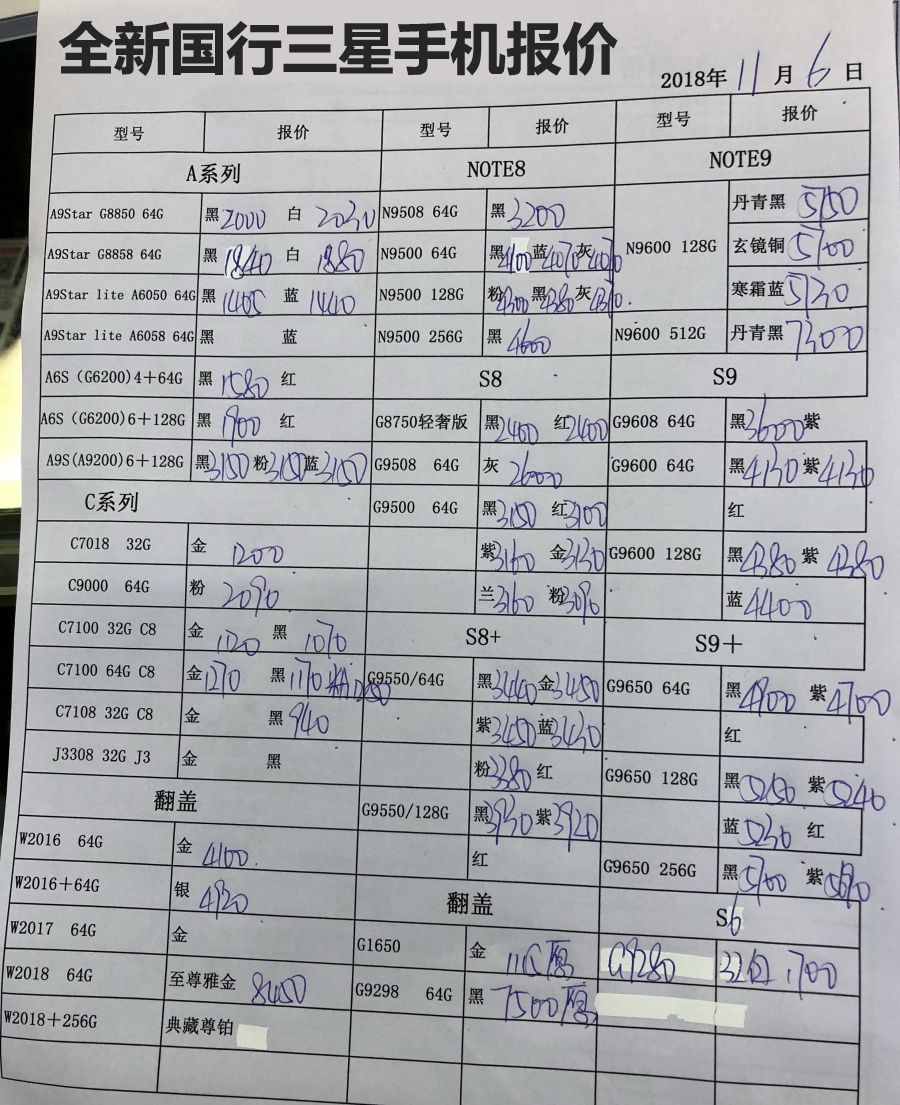 全新国行三星手机报价
2018年 11 月 6 日
型号 报价 型号 报价 型号 报价
A系列 NOTE8 NOTE9
A9Star G8850 64G 黑 2000 白 2030 N9508 64G 黑 3200 N9600 128G 丹青黑 5150
A9Star G8858 64G 黑 1840 白 1880 N9500 64G 黑 4100 蓝 4070 灰 4070 玄镜铜 5100
A9Star lite A6050 64G 黑 1405 蓝 1440 N9500 128G 粉 4300 黑 4380 灰 寒霜蓝 5130
A9Star lite A6058 64G 黑 蓝 N9500 256G 黑 4600 N9600 512G 丹青黑 7300
A6S (G6200)4+64G 黑 1580 红 S8 S9
A6S (G6200)6+128G 黑 1900 红 G8750轻奢版 黑 2400 红 2400 G9608 64G 黑 紫
A9S(A9200)6+128G 黑 3150 粉 3150 蓝 3150 G9508 64G 灰 G9600 64G 黑 4130 紫 4130
C系列 G9500 64G 黑 3150 红 3100 红
C7018 32G 金 1200 紫 3160 金 3130 G9600 128G 黑 4380 紫 4380
C9000 64G 粉 2090 兰 3160 粉 3090 蓝 4400
C7100 32G C8 金 1120 黑 1070 S8+ S9+
C7100 64G C8 金 1270 黑 1170 G9550/64G 黑 3440 金 3450 G9650 64G 黑 4900 紫 4700
C7108 32G C8 金 黑 940 紫 3450 蓝 3430 红
J3308 32G J3 金 黑 粉 3380 红 G9650 128G 黑 5250 紫 5240
翻盖 G9550/128G 黑 3930 紫 3920 蓝 5230 红
W2016 64G 金 4100 红 G9650 256G 黑 5700 紫 5690
W2016+64G 银 4920 翻盖 S6
W2017 64G 金 G1650 金 1115 G9280 32 1700
W2018 64G 至尊雅金 8450 G9298 64G 黑 7500
W2018+256G 典藏尊铂